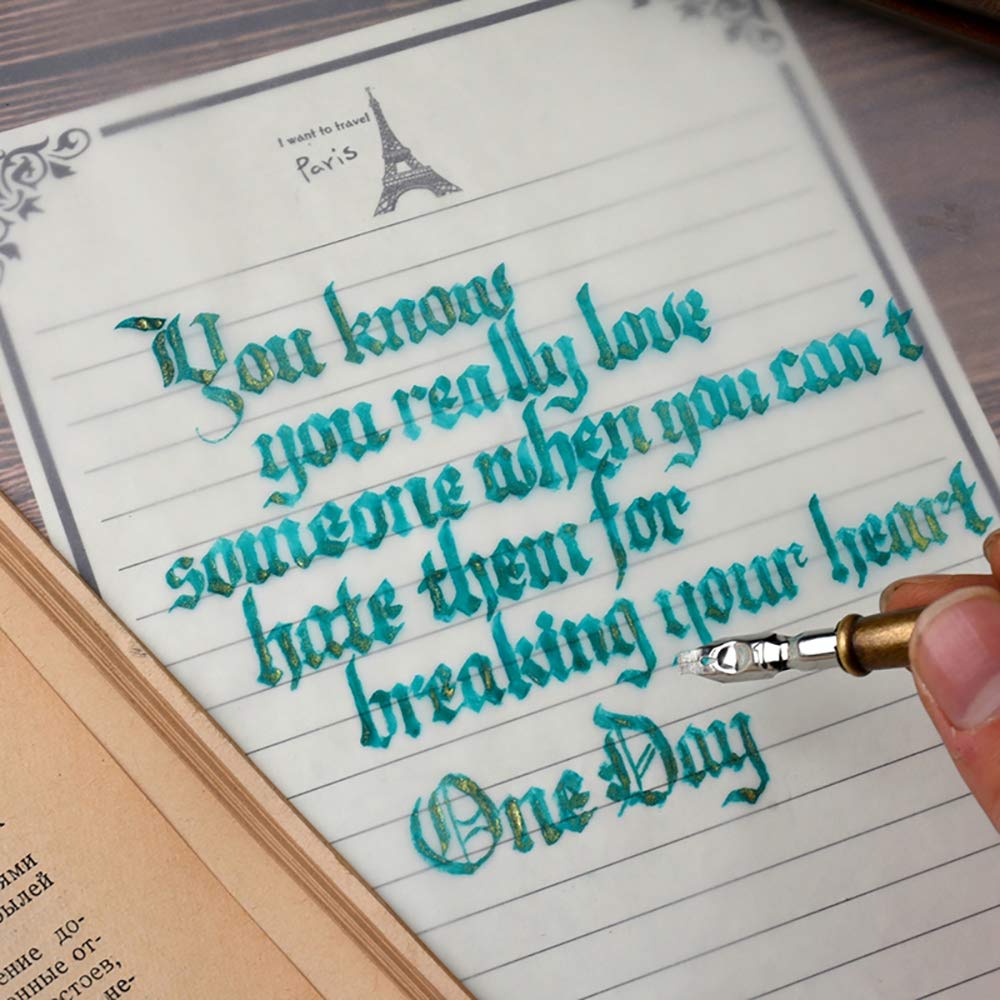 I want to travel
Paris
You know
you really love
someone when you can't
hate them for
breaking your heart
One Day
ями
ылей
ение до-
нные от-
стоев,
не-